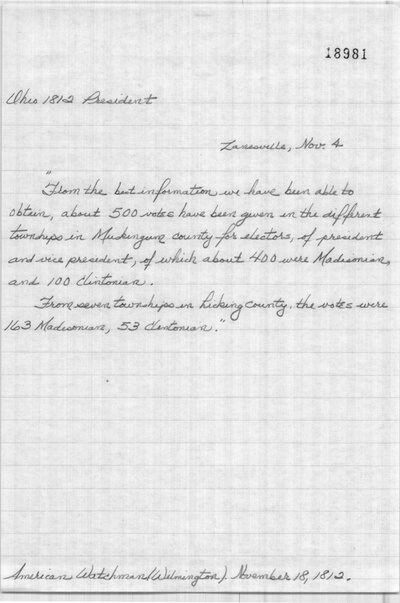 18981
Ohio 1812 President
Zanesville, Nov. 4
"From the best information we have been able to
obtain, about 500 votes have been given in the different
townships in Muskingum county for electors, of president
and vice president, of which about 400 were Madisonian,
and 100 Clintonian.
From seven townships in Licking County, the votes were
163 Madisonian, 53 Clintonian."
American Watchman (Wilmington). November 18, 1812.